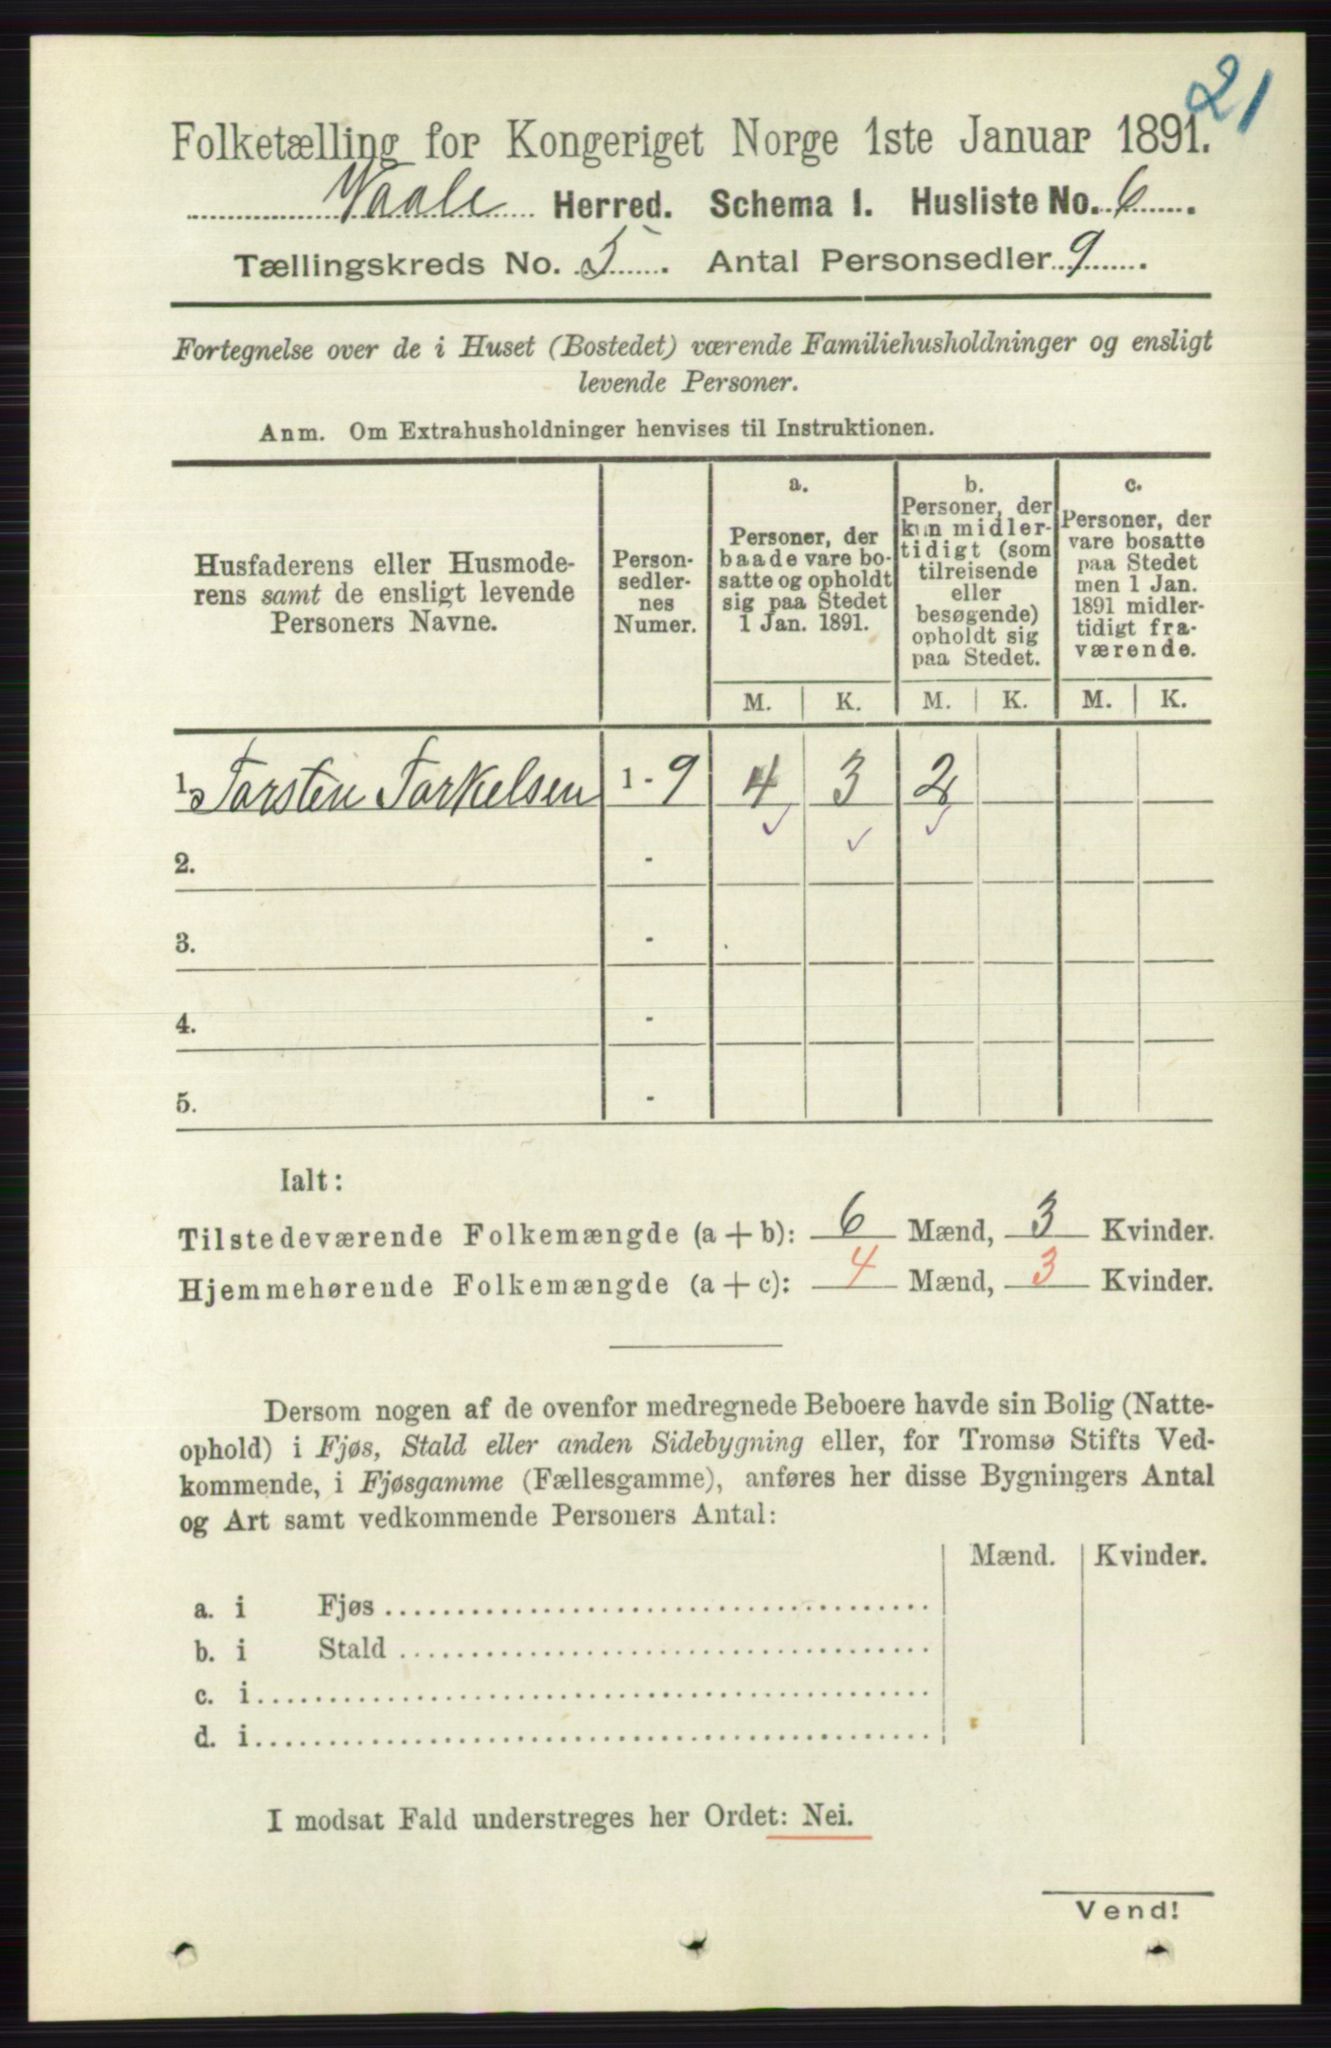 21
Folketælling for Kongeriget Norge 1ste Januar 1891.
Vaale Herred. Schema 1. Husliste No. 6.
Tællingskreds No. 5. Antal Personsedler 9.
Fortegnelse over de i Huset (Bostedet) værende Familiehusholdninger og ensligt
levende Personer.
Anm. Om Extrahusholdninger henvises til Instruktionen.
Husfaderens eller Husmode-
rens samt de ensligt levende
Personers Navne.
Person-
sedler-
nes
Numer.
a.
Personer, der
baade vare bo-
satte og opholdt
sig paa Stedet
1 Jan. 1891.
b.
Personer, der
kun midler-
tidigt (som
tilreisende
eller
besøgende)
opholdt sig
paa Stedet.
c.
Personer, der
vare bosatte
paa Stedet
men 1 Jan.
1891 midler-
tidigt fra-
værende.
M. K. M. K. M. K.
1. Torsten Torkelsen 1 - 9 4 3 2
2. -
3. -
4. -
5. -
Ialt:
Tilstedeværende Folkemængde (a + b): 6 Mænd, 3 Kvinder.
Hjemmehørende Folkemængde (a + c): 4 Mænd, 3 Kvinder.
Dersom nogen af de ovenfor medregnede Beboere havde sin Bolig (Natte-
ophold) i Fjøs, Stald eller anden Sidebygning eller, for Tromsø Stifts Ved-
kommende, i Fjøsgamme (Fællesgamme), anføres her disse Bygningers Antal
og Art samt vedkommende Personers Antal:
Mænd. Kvinder.
a. i Fjøs
b. i Stald
c. i
d. i
I modsat Fald understreges her Ordet: Nei.
Vend!